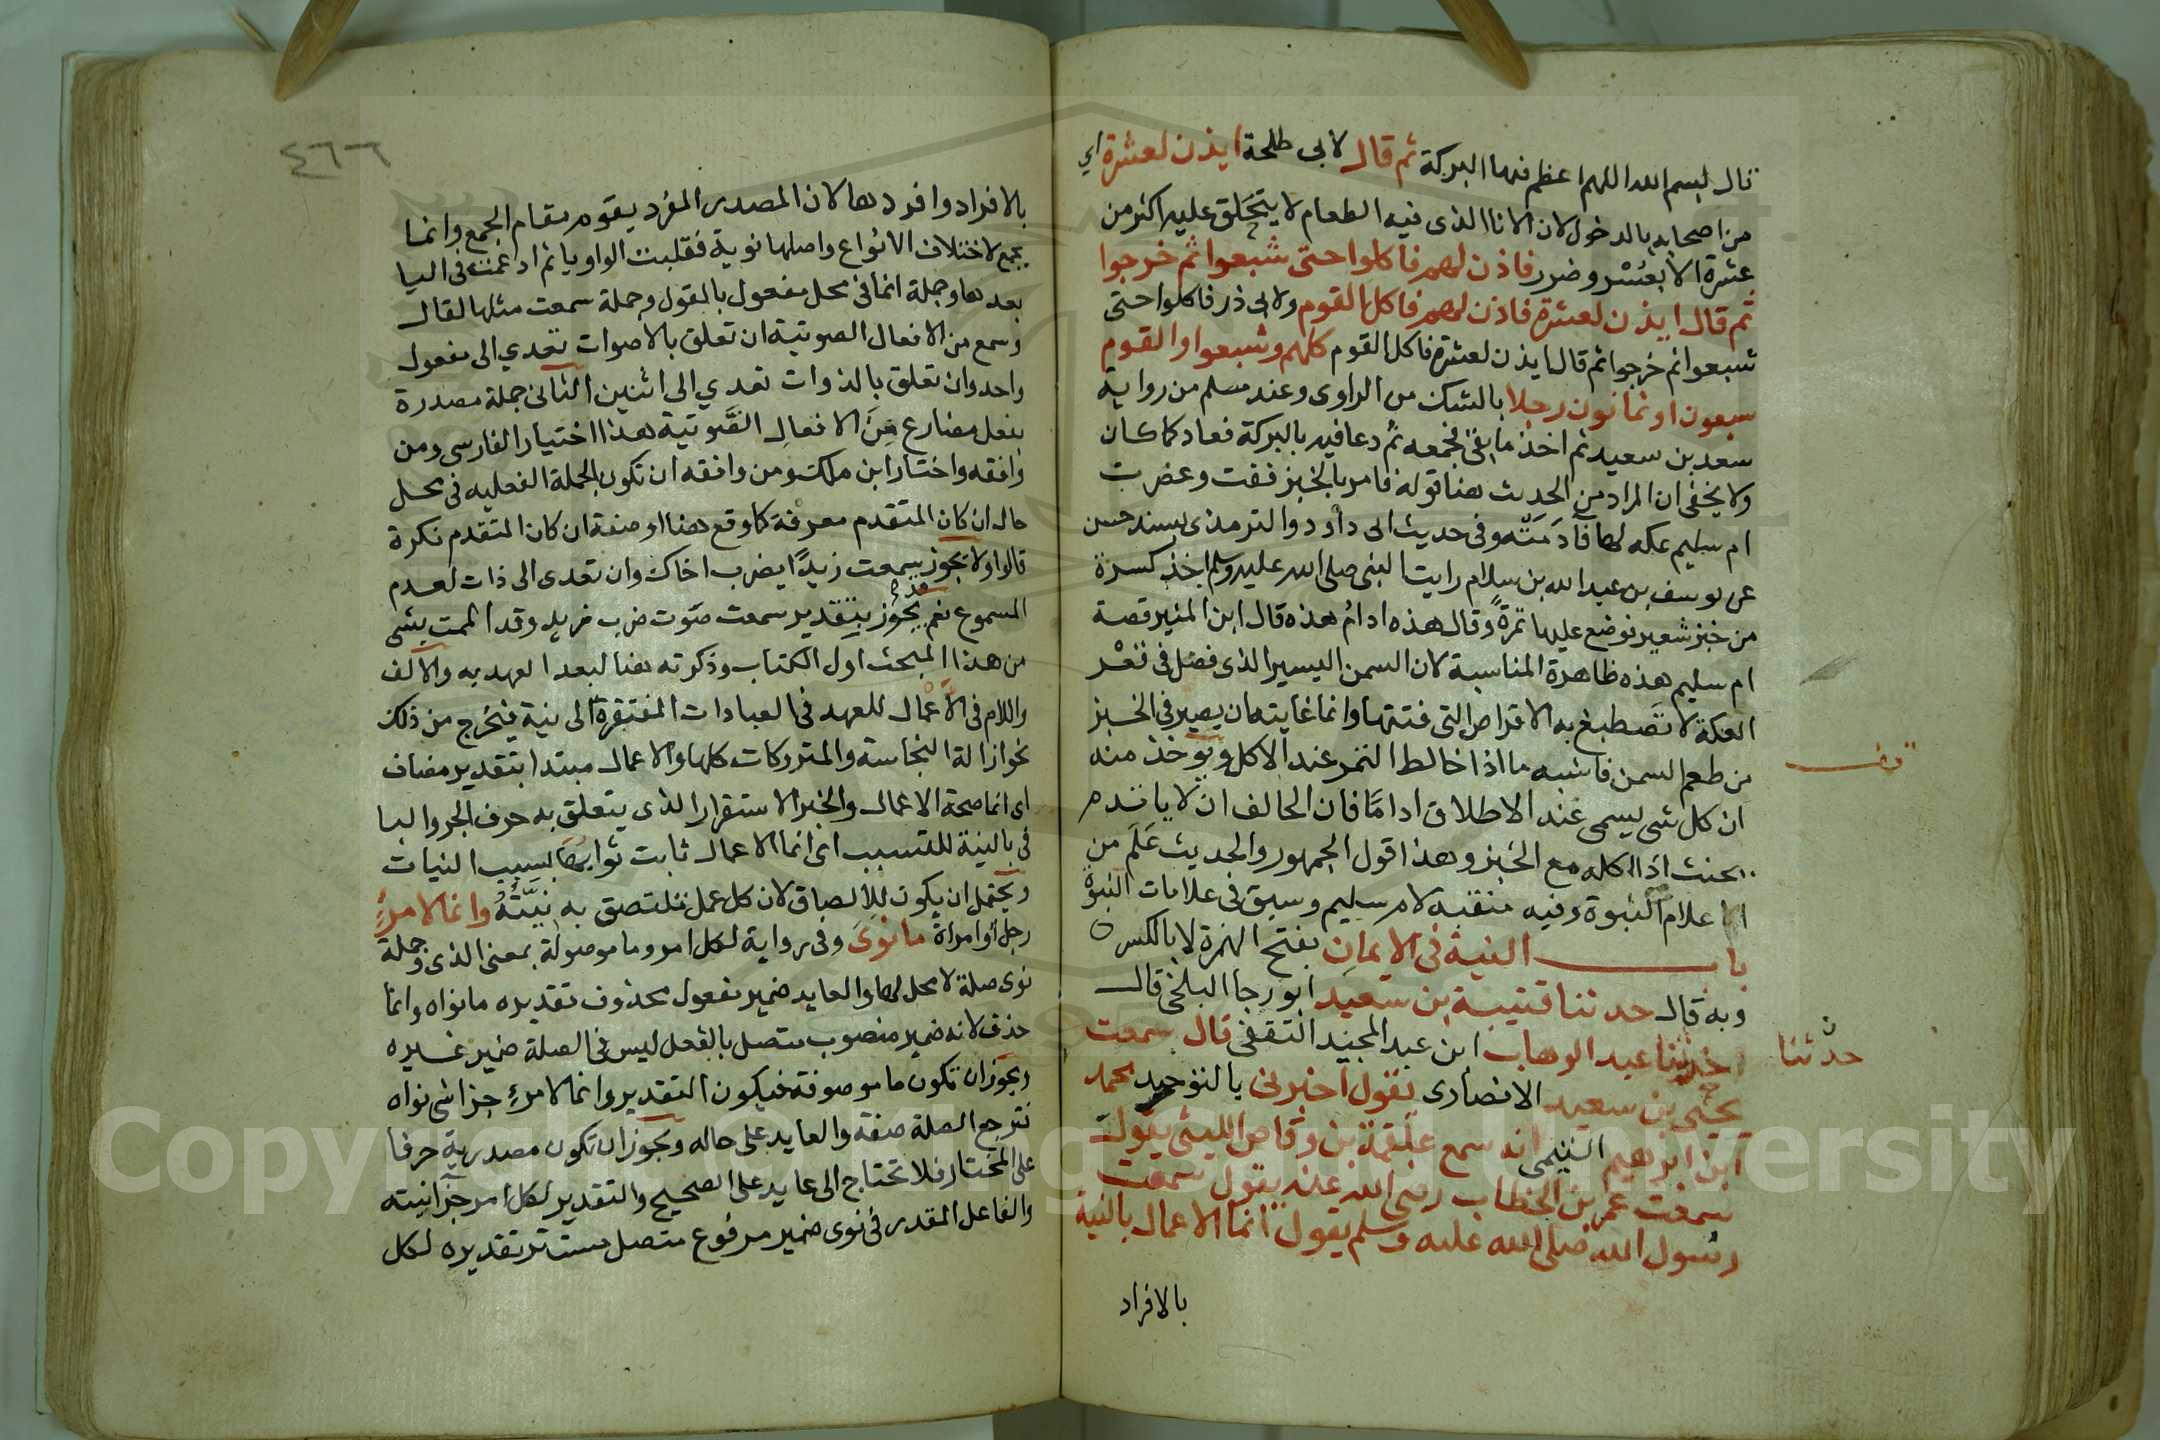 قال بسم الله اللهم اعظم فيها البركة ثم قال لابى طلحة ايذن لعشرة اي
من اصحابه بالدخول لان الانا الذى فيه الطعام لا يتحلق عليه اكثر من
عشرة الا بعسر وضرر فاذن لهم فاكلوا حتى شبعوا ثم خرجوا
ثم قال ايذن لعشرة فاذن لهم فاكل القوم ولابى ذر فاكلوا حتى
شبعوا ثم خرجوا ثم قال ايذن لعشرة فاكل القوم كلهم وشبعوا والقوم
سبعون او ثمانون رجلا بالشك من الراوى وعند مسلم من رواية
سعد بن سعيد ثم اخذ ما بقى فجمعه ثم دعا فيه بالبركة فعاد كما كان
ولا يخفى ان المراد من الحديث هنا قوله فامر بالخبز ففت وعصرت
ام سليم عكه لها فآدمته وفى حديث ابى داود والترمذى بسند حسن
عن يوسف بن عبد الله بن سلام رايت النبى صلى الله عليه وسلم اخذ كسرة
من خبز شعير فوضع عليها تمرة وقال هذه ادام هذه قال ابن المنير قصة
ام سليم هذه ظاهرة المناسبة لان السمن اليسير الذى فضل فى قعر
العكة لا تصطبغ به الاقراص التى فتتها وانما غايته ان يصير فى الخبز
من طعم السمن فاشبه ما اذا خالط التمر عند الاكل ويوخذ منه
قف
ان كل شى يسمى عند الاطلاق اداما فان الحالف ان لا ياتدم
يحنث اذا اكله مع الخبز وهذا قول الجمهور والحديث علم من
اعلام النبوة وفيه منقبه لام سليم وسبق فى علامات النبوة
باب النية فى الايمان بفتح الهمزة لا بالكسر
وبه قال حدثنا قتيبة بن سعيد ابو رجا البلخى قال
حدثنا عبد الوهاب ابن عبد المجيد الثقفى قال سمعت
حدثنا
يحيى بن سعيد الانصارى يقول اخبرنى بالتوحيد محمد
ابن ابرهيم التيمى انه سمع علقمة بن وقاص الليثى يقول
سمعت عمر بن الخطاب رضى الله عنه يقول سمعت
رسول الله صلى الله عليه وسلم يقول انما الاعمال بالنية
بالافراد
٤٦٦
بالافراد وافردها لان المصدر المفرد يقوم مقام الجمع وانما
يجمع لاختلاف الانواع واصلها نوية فقلبت الواو يا ثم ادغمت فى اليا
بعدها وجملة انما فى محل مفعول بالقول وجملة سمعت مثلها لقال
وسمع من الافعال الصوتية ان تعلق بالاصوات تعدي الى مفعول
واحد وان تعلق بالذوات تعدي الى اثنين الثانى جملة مصدرة
بفعل مضارع من الافعال الصوتية هذا اختيار الفارسى ومن
وافقه واختار ابن ملك ومن وافقه ان تكون الجملة الفعليه فى محل
حال ان كان المتقدم معرفة كما وقع هنا او صفة ان كان المتقدم نكرة
قالوا ولا يجوز سمعت زيدا يضرب اخاك وان تعدى الى ذات لعدم
المسموع نعم يجوز بتقدير سمعت صوت ضرب زيد وقد الممت بشى
من هذا المبحث اول الكتاب وذكرته هنا لبعد العهد به والالف
واللام فى الاعمال للعهد فى العبادات المفتقرة الى نية فيخرج من ذلك
نحو ازالة النجاسة والمتروكات كلها والاعمال مبتدا بتقدير مضاف
اى انما صحة الاعمال والخبر الاستقرار الذى يتعلق به حرف الجر والبا
فى بالنية للتسبب اى انما الاعمال ثابت ثوابها بسبب النيات
ويحتمل ان يكون للالصاق لان كل عمل تلتصق به نيته وانما لامرئ
رجل او امراة ما نوى وفى رواية لكل امر وما موصولة بمعنى الذى وجملة
نوى صلة لا محل لها والعايد ضمير مفعول محذوف تقديره ما نواه وانما
حذف لانه ضمير منصوب متصل بالفعل ليس فى الصلة ضمير غيره
ويجوز ان تكون ما موصوفة فيكون التقدير وانما لامرئ جزا شى نواه
فترجع الصلة صفة والعايد على حاله ويجوز ان تكون مصدرية حرفا
على المختار فلا تحتاج الى عايد على الصحيح والتقدير لكل امر جزا نيته
والفاعل المقدر فى نوى ضمير مرفوع متصل مستتر تقديره لكل
Copyright © King Saud University